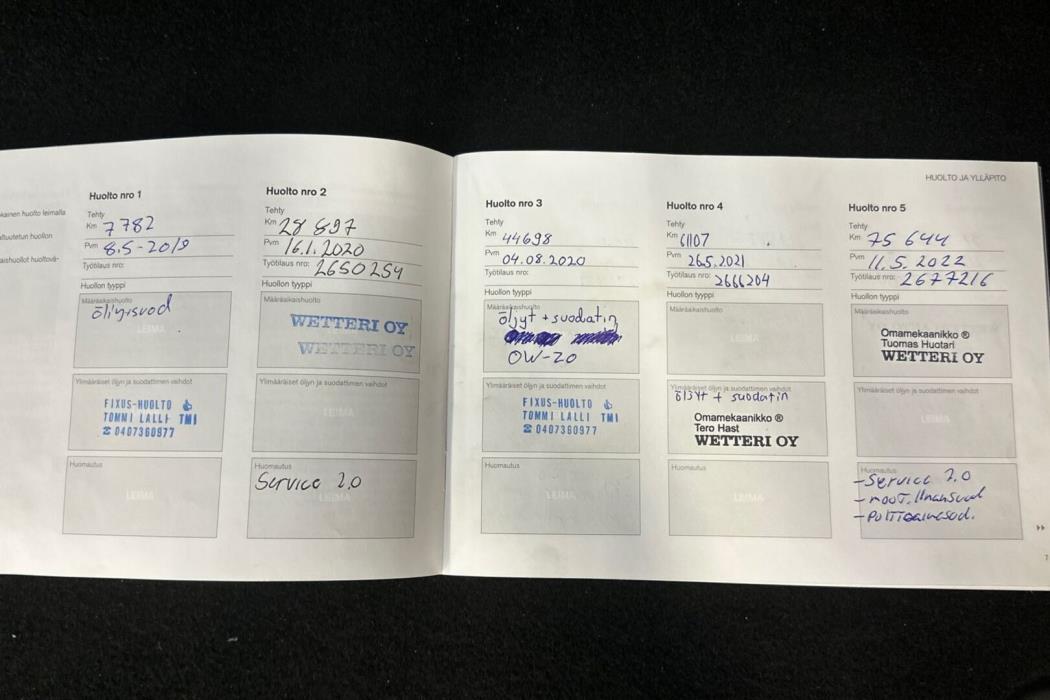 HUOLTO JA YLLÄPITO
kainen huolto leimalla
altuutetun huollon
aishuollot huoltovä-
Huolto nro 1
Tehty
Km 7 782
Pvm 8.5-2019
Työtilaus nro:
Huollon tyyppi
Määräaikaishuolto
öljy+suod
LEIMA
Ylimääräiset öljyn ja suodattimen vaihdot
FIXUS-HUOLTO
TOMMI LALLI TMI
☎ 0407360977
Huomautus
LEIMA
Huolto nro 2
Tehty
Km 28 897
Pvm 16.1.2020
Työtilaus nro: 2650254
Huollon tyyppi
Määräaikaishuolto
WETTERI OY
WETTERI OY
Ylimääräiset öljyn ja suodattimen vaihdot
LEIMA
Huomautus
Service 2.0
LEIMA
Huolto nro 3
Tehty
Km 44698
Pvm 04.08.2020
Työtilaus nro:
Huollon tyyppi
Määräaikaishuolto
öljyt + suodatin
0W-20
Ylimääräiset öljyn ja suodattimen vaihdot
FIXUS-HUOLTO
TOMMI LALLI TMI
☎ 0407360977
Huomautus
LEIMA
Huolto nro 4
Tehty
Km 61107
Pvm 26.5.2021
Työtilaus nro: 2666204
Huollon tyyppi
Määräaikaishuolto
LEIMA
Ylimääräiset öljyn ja suodattimen vaihdot
öljyt + suodatin
Omamekaanikko ®
Tero Hast
WETTERI OY
Huomautus
LEIMA
Huolto nro 5
Tehty
Km 75 644
Pvm 11.5.2022
Työtilaus nro: 2677216
Huollon tyyppi
Määräaikaishuolto
Omamekaanikko ®
Tuomas Huotari
WETTERI OY
Ylimääräiset öljyn ja suodattimen vaihdot
LEIMA
Huomautus
-Service 2.0
-moot.ilmansuod
-Polttoainesod.
7